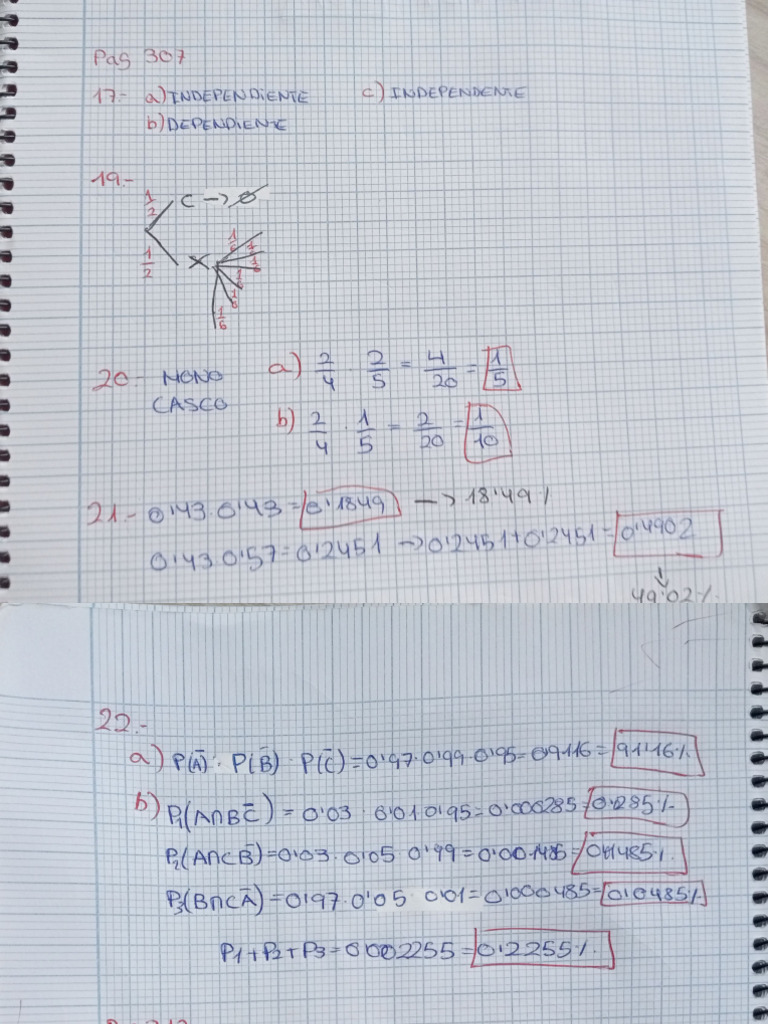 Pag 307
17.- a) INDEPENDIENTE c) INDEPENDENTE
b) DEPENDIENTE
19.-
1/2 C → Ø
1/2 X 1/6 1/6 1/6 1/6 1/6 1/6
20- MONO CASCO a) 2/4 · 2/5 = 4/20 = 1/5
b) 2/4 · 1/5 = 2/20 = 1/10
21.- 0'43·0'43 = 0'1849 → 18'49%
0'43·0'57 = 0'2451 → 0'2451+0'2451 = 0'4902
↓
49'02%
22.-
a) P(Ā)·P(B̄)·P(C̄) = 0'97·0'99·0'95 = 0'9116 = 91'16%
b) P₁(A∩BC̄) = 0'03·0'01 0'95 = 0'000285 = 0'285%
P₂(A∩CB̄) = 0'03·0'05 0'99 = 0'001485 = 0'1485%
P₃(B∩CĀ) = 0'97·0'05·0'01 = 0'000485 = 0'0485%
P1+P2+P3 = 0'002255 = 0'2255%